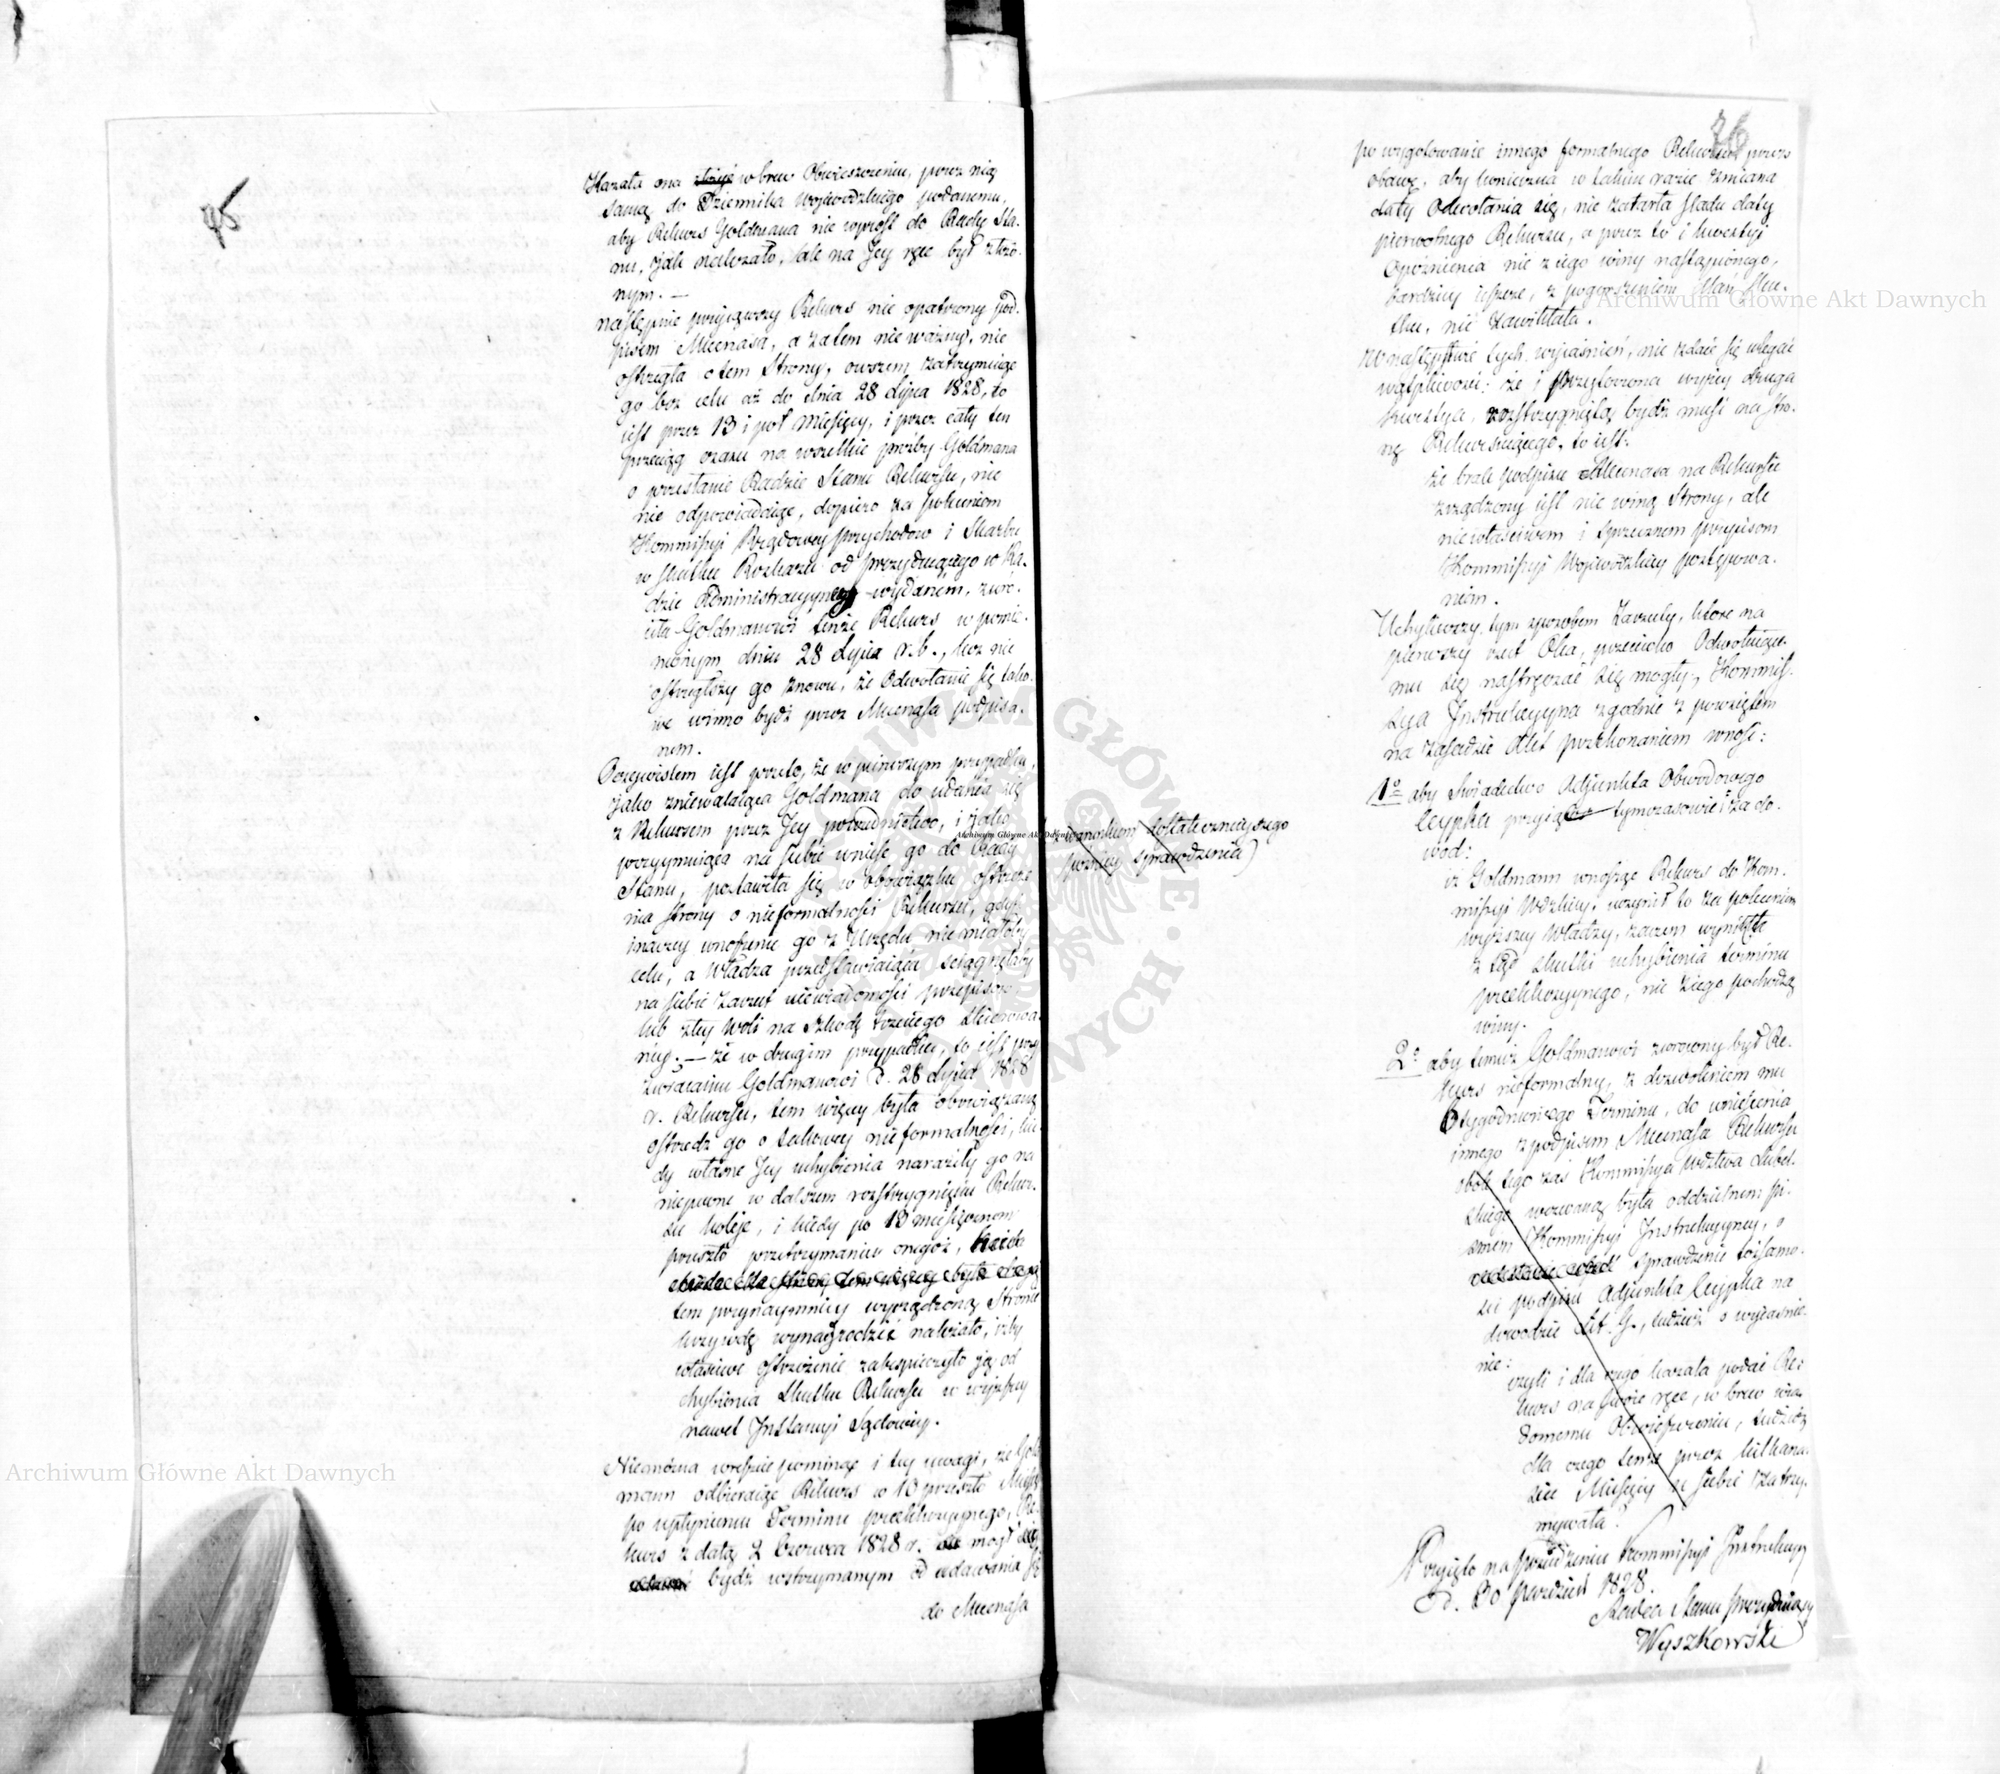 45
Kazała ona wbrew Obwieszczeniu, przez nią
samą do Dziennika Wojewodzkiego podanemu,
aby Rekurs Goldmana nie wprost do Rady Sta-
nu, jak należało, ale na Jey ręce był złożo-
nym. —
następnie przyiąwszy Rekurs nie opatrzony pod-
pisem Mecenasa, a zatem nieważny, nie
ostrzegła o tem Strony, owszem zatrzymuiąc
go bez celu aż do dnia 28 Lipca 1828, to
iest przez 13 i poł Miesięcy, i przez cały ten
przeciąg czasu na wszelkie prośby Goldmana
o przesłanie Radzie Stanu Rekursu, nic
nie odpowiadaiąc, dopiero za poleceniem
Kommissyi Rządowey Przychodow i Skarbu
w skutku Rozkazu od prezyduiącego w Ra-
dzie Administracyyney wydanem, zwró-
ciła Goldmanowi tenże Rekurs w pomie-
nionym dniu 28 Lipca r. b., lecz nie
ostrzegłszy go znowu, że Odwołanie się tako-
we winno bydź przez Mecenasa podpisa-
nem.
Oczywistem iest przeto, że w pierwszym przypadku,
jako zniewalaiąca Goldmana do udania się
z Rekursem przez Jey pośrednictwo, i jako
przyymuiąca na siebie wniesć go do Rady
Stanu, postawiła się w obowiązku ostrzeże-
nia strony o nieformalności Rekursu, gdyż
inaczey wnoszenie go z Urzędu nie miałoby
celu, a Władza przedstawiaiąca sciągnęłaby
na siebie zarzut niewiadomości przepisow
lub złey woli na szkodę trzeciego skierowa-
ney; — że w drugim przypadku, to iest przy
zwracaniu Goldmanowi d. 28 Lipca 1828
r. Rekursu, tem więcey była obowiązaną
ostrzedz go o takowey nieformalności, kie-
dy własne Jey uchybienia naraziły go na
niepewne w dalszem rozstrzygnięciu Rekur-
su koleje, i kiedy po 13 miesięcznem
przeszło przetrzymaniu onegoż,
tem przynaymniey wyrządzoną Stronie
krzywdę wynagrodzić należało, iżby
właściwe ostrzeżenie zabespieczyło ją od
chybienia skutku Rekursu w wyższey
nawet Instancyi Sądowey.
Niemożna wreszcie pominąć i tey uwagi, że Gold-
mann odbieraiąc Rekurs w 10 przeszło Miesięcy
po upłynieniu Terminu prekluzyynego, Re-
kurs z datą 2 Czerwca 1828 r. mógł
bydź wstrzymanym od udawania się
do Mecenasa
76
po wygotowanie innego formalnego Rekursu przez
obawę, aby konieczna w takim razie zmiana
daty Odwołania się, nie zatarła sladu daty
pierwotnego Rekursu, a przez to i kwestyi
Opóźnienia nie z iego winy nastąpionego,
bardziey ieszcze, z pogorszeniem
nie zawikłała.
W następstwie tych wyiaśnień, nie zdaie się ulegać
wątpliwości: że i przytoczona wyżey druga
kwestya, rozstrzygniętą bydź musi na Stro-
nę Rekursuiącego, to iest:
że brak podpisu Mecenasa na Rekursie
zrządzony iest nie winą Strony, ale
niewłaściwem i sprzecznem przepisom
Kommissyi Wojewodzkiey postępowa-
niem.
Uchyliwszy tym sposobem Zarzuty, ktore na
pierwszy rzut Oka, przeciwko Odwołuiące-
mu się nastręczać się mogły, Kommis-
sya Instrukcyyna zgodnie z powziętem
na zasadzie Akt przekonaniem wnosi:
1º aby świadectwo Adjunkta Obwodowego
Ceypka przyiąć tymczasowie za do-
wod:
(z warunkiem dostatecznieyszego
poźniey sprawdzenia)
iż Goldmann wnosząc Rekurs do Kom-
missyi Wdzkiey, uczynił to za poleceniem
wyższey Władzy, zaczem wynikłe
z tąd skutki uchybienia terminu
prekluzyynego, nie z iego pochodzą
winy.
2º aby temuż Goldmanowi zwrócony był Re-
kurs nieformalny, z dozwoleniem mu
6tygodniowego Terminu, do wniesienia
innego z podpisem Mecenasa Rekursu
obok tego zaś Kommissya Wdztwa Lubel-
skiego wezwaną była oddzielnem pi-
smem Kommissyi Instrukcyyney, o
sprawdzenie tożsamo-
ści podpisu Adjunkta Ceypka na
dowodzie Lit. G., tudzież o wyiaśnie-
nie:
czyli i dla czego kazała podać Re-
kurs na swoie ręce, w brew wia-
domemu Obwieszczeniu, tudzież
dla czego tenże przez kilkana-
ście Miesięcy u siebie zatrzy-
mywała?
Przyięto na posiedzeniu Kommissyi Instrukcyy
d. 30 Paździer 1828.
Radca Stanu Prezyduiący
Wyszkowski
Archiwum Główne Akt Dawnych
Archiwum Główne Akt Dawnych
Archiwum Główne Akt Dawnych
ARCHIWUM GŁÓWNE AKT DAWNYCH